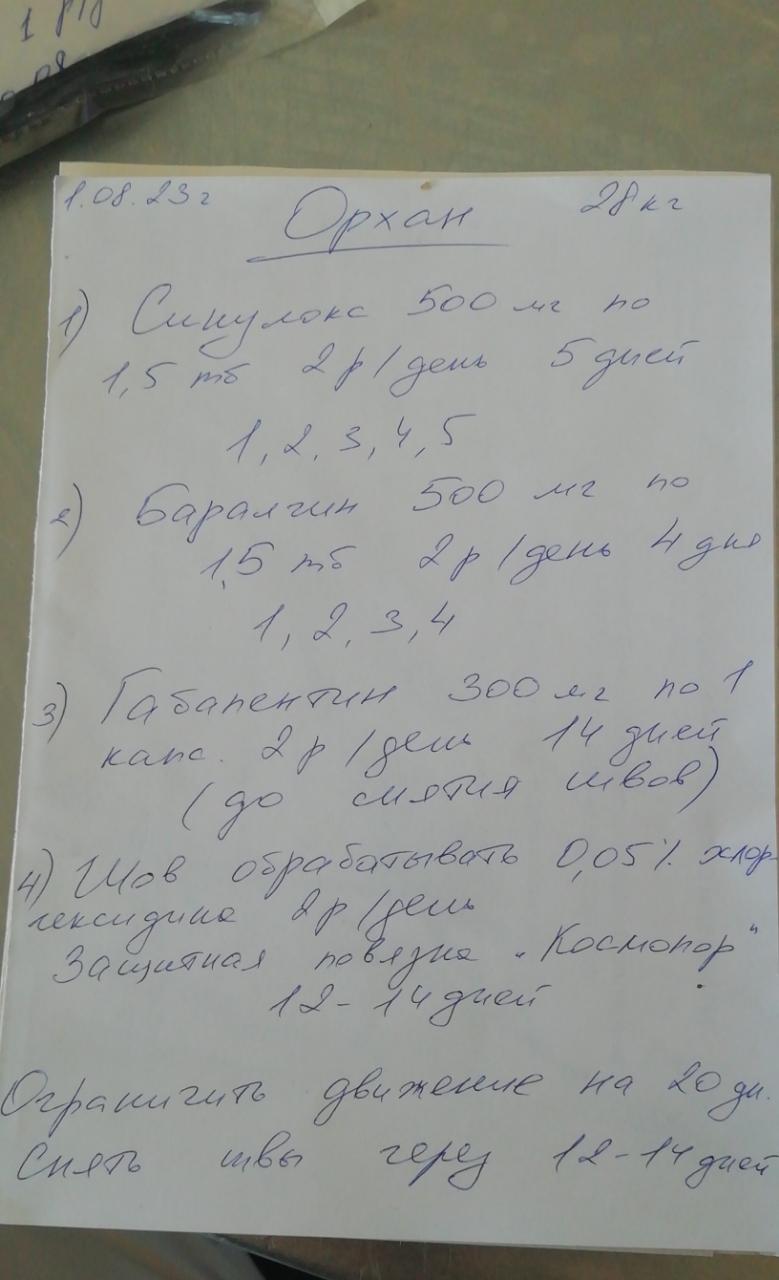 1.08.23г Орхан 28кг
1) Синулокс 500 мг по
1,5 тб 2р/день 5 дней
1, 2, 3, 4, 5
2) Баралгин 500 мг по
1,5 тб 2р/день 4 дня
1, 2, 3, 4
3) Габапентин 300 мг по 1
капс. 2р/день 14 дней
(до снятия швов)
4) Шов обрабатывать 0,05% хлор-
гексидина 2р/день
Защитная повязка "Космопор"
12-14 дней
Ограничить движение на 20 дн.
Снять швы через 12-14 дней